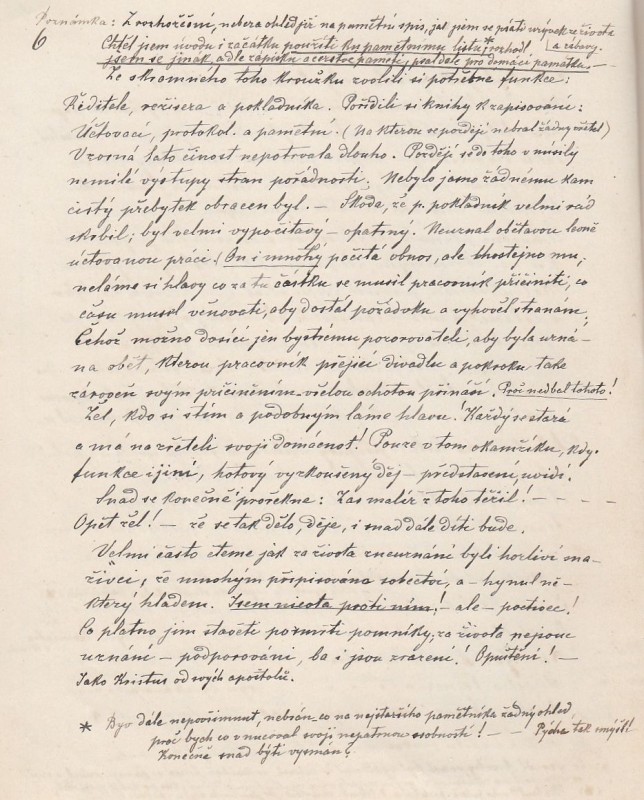 Poznámka: Z rozhořčení, nebera ohled již na pamětní spis, jal jsem se psáti úryvek ze života
6
Chtěl jsem úvodu i začátku použíti ku pamětnímu listu,* rozhodl (a zábavy.
jsem se jinak, a dle zápisku a čerstvé paměti, psal déle pro domácí památku. —
Ze skromného toho kroužku zvolili si potřebné funkce:
Ředitele, režisera a pokladníka. Pořídili si knihy k zapisování:
Účtovací, protokol. a pamětní. (Na kterou se později nebral žádný zřetel)
Vzorná tato činost nepotrvala dlouho. Později se do toho vnusily
nemilé výstupy stran pořádnosti. Nebylo jasno žádnému kam
čistý přebytek obracen byl. — Škoda, že p. pokladník velmi rád
skrbil; byl velmi vypočítavý — opatrný. Neuznal obětavou levně
účtovanou práci. (On i mnohý počítá obnos, ale lhostejno mu,
neláme si hlavy co za tu částku se musil pracovník přičiniti, co
času musel věnovati, aby dostál pořádku a vyhověl stranám,
Čehož možno docíci jen bystrému pozorovateli, aby byla uzná-
na oběť, kterou pracovník přející divadlu a pokroku také
zároveň svým přičiněním všelou ochotou přináší. Proč nedbal tohoto!
Žel, kdo si stím a podobným láme hlavu! Každý se stará
a má na zřeteli svoji domácnost! Pouze v tom okamžiku, kdy
funkce i jiní, hotový vyzkoušený děj — představení, uvidí.
Snad se konečně prořekne: Zas malíř z toho těžil! — — — —
Opět žel! — že se tak dělo, děje, i snad dále díti bude.
Velmi často čteme jak za života zneuznaní byli horliví ma-
živci; že mnohým připisována sobectví, a — hynul ně-
který hladem. Jsem nicota proti ním! — ale — poctivec!
Co platno jim stavěti po smrti pomníky; za života nejsou
uznáni — podporováni, ba i jsou zrazeni! Opuštěni! —
Jako Kristus od svých apoštolů.
* Byv dále nepovšimnut, nebrán-co na nejstaršího pamětníka žádný ohled,
proč bych co vnucoval svoji nepatrnou osobností! — — Pýcha tak smýšlí!
Konečně snad býti vysmán?